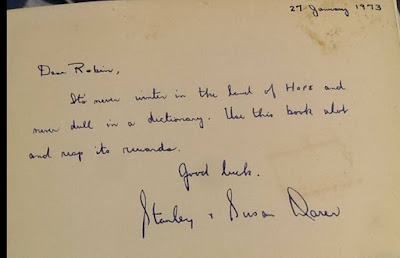 27 January 1973
Dear Robin,
It's never winter in the land of Hope and
never dull in a dictionary. Use this book alot
and reap its rewards.
Good luck.
Stanley & Susan